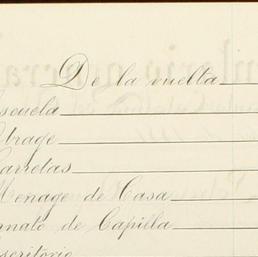 De la vuelta
scuela
trage
arretas
enage de Casa
rnato de Capilla
scritorio